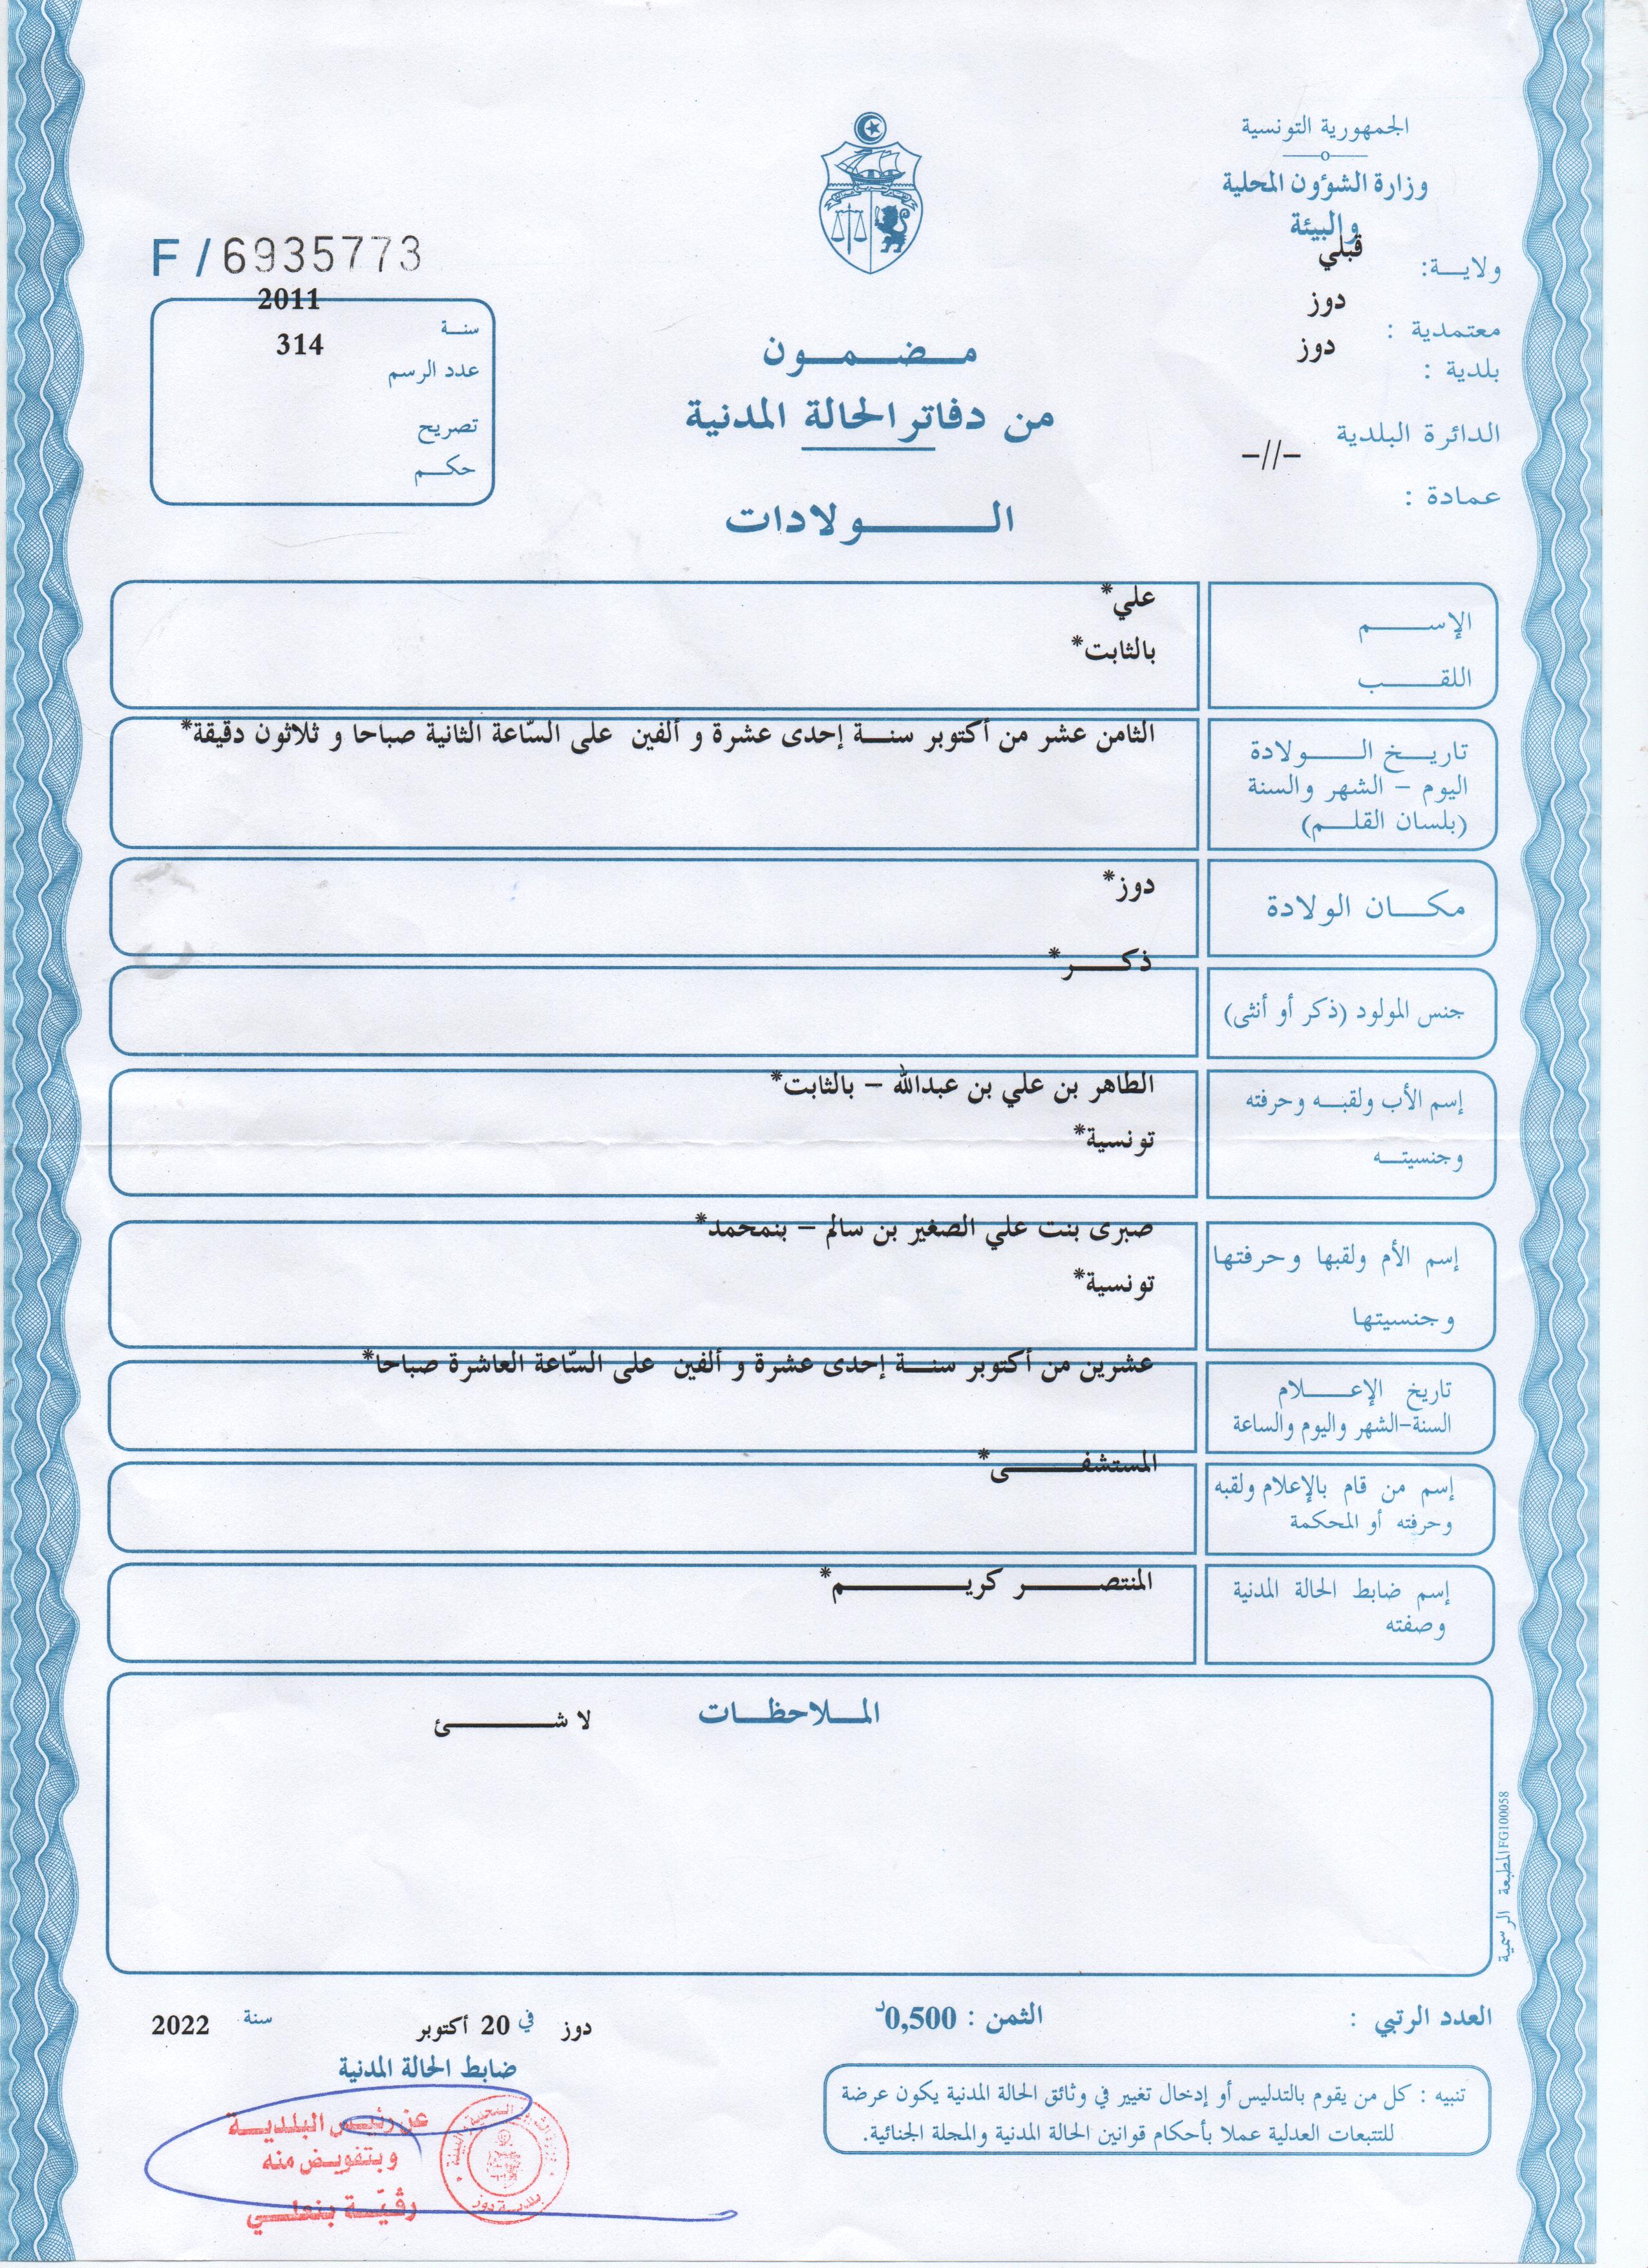 الجمهورية التونسية
وزارة الشؤون المحلية
والبيئة
ولايـــة: قبلي
معتمدية : دوز
بلدية : دوز
الدائرة البلدية
–//–
عمادة :
F / 6935773
سنــة 2011
عدد الرسم 314
تصريح
حكــم
مـــضـــمـــون
من دفاتر الحالة المدنية
الـــــولادات
الإســـــم علي*
اللقـــــب بالثابت*
تاريـــخ الـــــولادة
اليوم – الشهر والسنة
(بلسان القلـــم)
الثامن عشر من أكتوبر سنـــة إحدى عشرة و ألفين على السّاعة الثانية صباحا و ثلاثون دقيقة*
مكـــان الولادة
دوز*
جنس المولود (ذكر أو أنثى)
ذكـــر*
إسم الأب ولقبــه وحرفته
وجنسيتــه
الطاهر بن علي بن عبدالله – بالثابت*
تونسية*
إسم الأم ولقبها وحرفتها
وجنسيتها
صبرى بنت علي الصغير بن سالم – بنمحمد*
تونسية*
تاريخ الإعـــــلام
السنة-الشهر واليوم والساعة
عشرين من أكتوبر سنـــة إحدى عشرة و ألفين على السّاعة العاشرة صباحا*
إسم من قام بالإعلام ولقبه
وحرفته أو المحكمة
المستشفـــــى*
إسم ضابط الحالة المدنية
وصفته
المنتصـــــر كريـــــم*
المــلاحظــات
لا شـــــئ
المطبعة الرسمية FG100058
العدد الرتبي :
الثمن : 0,500د
دوز في 20 أكتوبر سنة 2022
ضابط الحالة المدنية
تنبيه : كل من يقوم بالتدليس أو إدخال تغيير في وثائق الحالة المدنية يكون عرضة
للتتبعات العدلية عملا بأحكام قوانين الحالة المدنية والمجلة الجنائية.
عن رئيس البلديــة
وبتفويـض منه
رقيّـــة بنعلـــي
بلديــة دوز